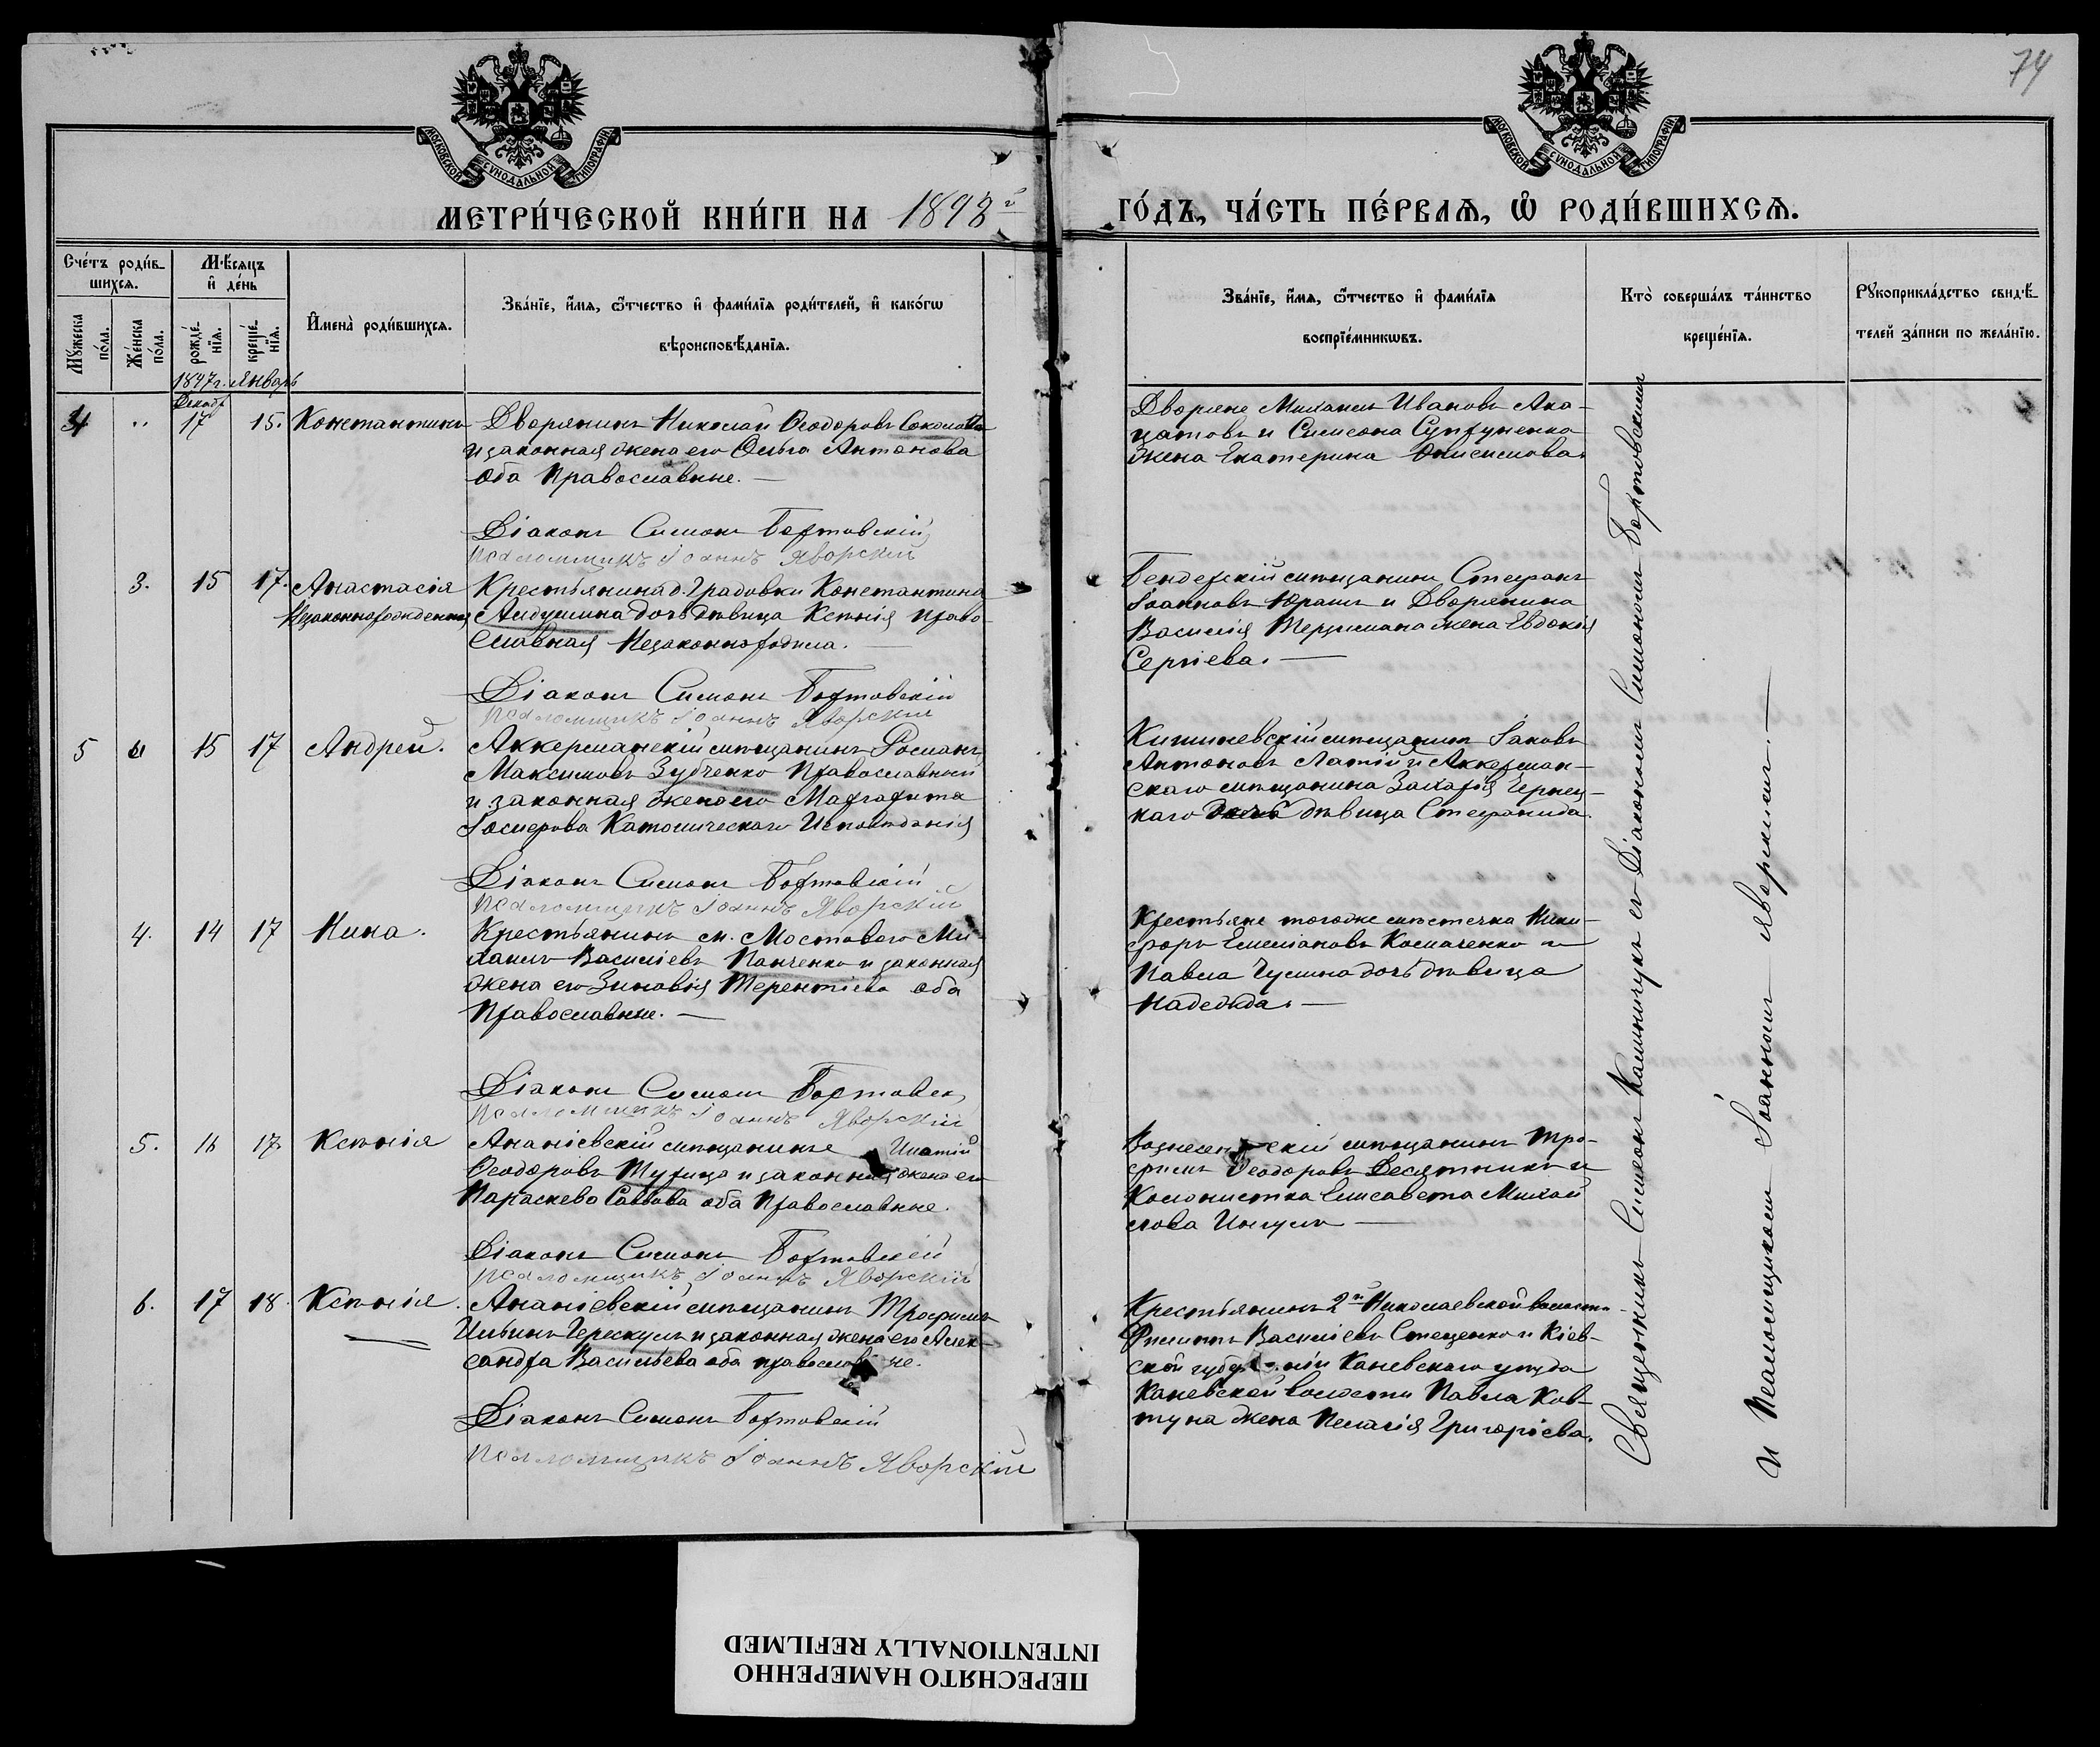 74
МОСКОВСКОЙ СѴНОДАЛЬНОЙ ТИПОГРАФІИ
МОСКОВСКОЙ СѴНОДАЛЬНОЙ ТИПОГРАФІИ
МЕТРИ́ЧЕСКОЙ КНИ́ГИ НА 1898й ГО́ДЪ, ЧА́СТЬ ПЕ́РВАѦ, Ѡ РОДИ́ВШИХСѦ.
Сче́тъ роди́в-
шихсѧ.
Мѣ́сѧцъ
и҆ де́нь
Мꙋ́жеска по́ла.
Же́нска по́ла.
рожде́-нїѧ.
креще́-нїѧ.
И҆мена̀ роди́вшихсѧ.
Зва́нїе, и҆́мѧ, ѻ҆́тчество и҆ фами́лїѧ роди́телей, и҆ како́гѡ
вѣроисповѣ́данїѧ.
Зва́нїе, и҆́мѧ, ѻ҆́тчество и҆ фами́лїѧ
воспрїе́мникѡвъ.
Кто̀ соверша́лъ та́инство
креще́нїѧ.
Рꙋкоприкла́дство свидѣ́-
телей за́писи по жела́нїю.
1897 г. Январь
Декабр
4 " 17 15. Константинъ
Дворянинъ Николай Ѳеодоровъ
и законная жена его Ольга Антонова
оба Православные. —
Діаконъ Симонъ Бортовскій
Псаломщикъ Іоаннъ Яворскій
Дворяне Михаилъ Ивановъ Ака-
цатовъ и Симеона Супруненко
жена Екатерина Онисимова
3. 15 17. Анастасія
Незаконнорожденная
Крестьянина д. Градовки Константина
дочь дѣвица Ксенія право-
славная Незаконно родила. —
Діаконъ Симонъ Бортовскій
Псаломщикъ Іоаннъ Яворскій
Бендерскій мѣщанинъ Стефанъ
Іоанновъ Юрашъ и Дворянина
Василія жена Евдокія
Сергіева. —
5 15 17 Андрей.
Аккерманскій мѣщанинъ Романъ
Максимовъ Зубченко Православный
и законная жена его Маргарита
Іосифова Католическаго Исповѣданія
Діаконъ Симонъ Бортовскій
Псаломщикъ Іоаннъ Яворскій
Кишиневскій мѣщанинъ Іаковъ
Антоновъ Латій и Аккерман-
скаго мѣщанина Захарія Чернец-
каго дочь дѣвица Стефанида.
4. 14 17 Нина.
Крестьянинъ м. Мостоваго Ми-
хаилъ Василіевъ Панченко и законная
жена его Зиновія Терентіева оба
Православные. —
Діаконъ Симонъ Бортовск
Псаломщикъ Іоаннъ Яворскій
Крестьяне тогоже мѣстечка Ники-
форъ Емеліановъ Космаченко и
Павла дочь дѣвица
Надежда. —
5. 16 17. Ксенія
Ананіевскій мѣщанинъ Ипатій
Ѳеодоровъ и законная жена его
Параскева Саввова оба Православные.
Діаконъ Симонъ Бортовскій
Псаломщикъ Іоаннъ Яворскій
Вознесенскій мѣщанинъ Тро-
фимъ Ѳеодоровъ Десятникъ и
Колонистка Елисавета Михай
лова —
6. 17 18. Ксенія.
Ананіевскій мѣщанинъ Трофимъ
Ильинъ и законная жена его Алек-
сандра Васильева оба православные.
Діаконъ Симонъ Бортовскій
Псаломщикъ Іоаннъ Яворскій
Крестьянинъ 2й Николаевской волости
Филиппъ Василіевъ Стеценко и Кіев-
ской губерніи Каневскаго уѣзда
Каневской волости Павла Ков-
туна жена Пелагія Григоріева.
Священникъ Симеонъ Калиничукъ съ Діакономъ Симономъ Бортовскимъ
и Псаломщикомъ Іоанномъ Яворскимъ. —
ПЕРЕСНЯТО НАМЕРЕННО
INTENTIONALLY REFILMED